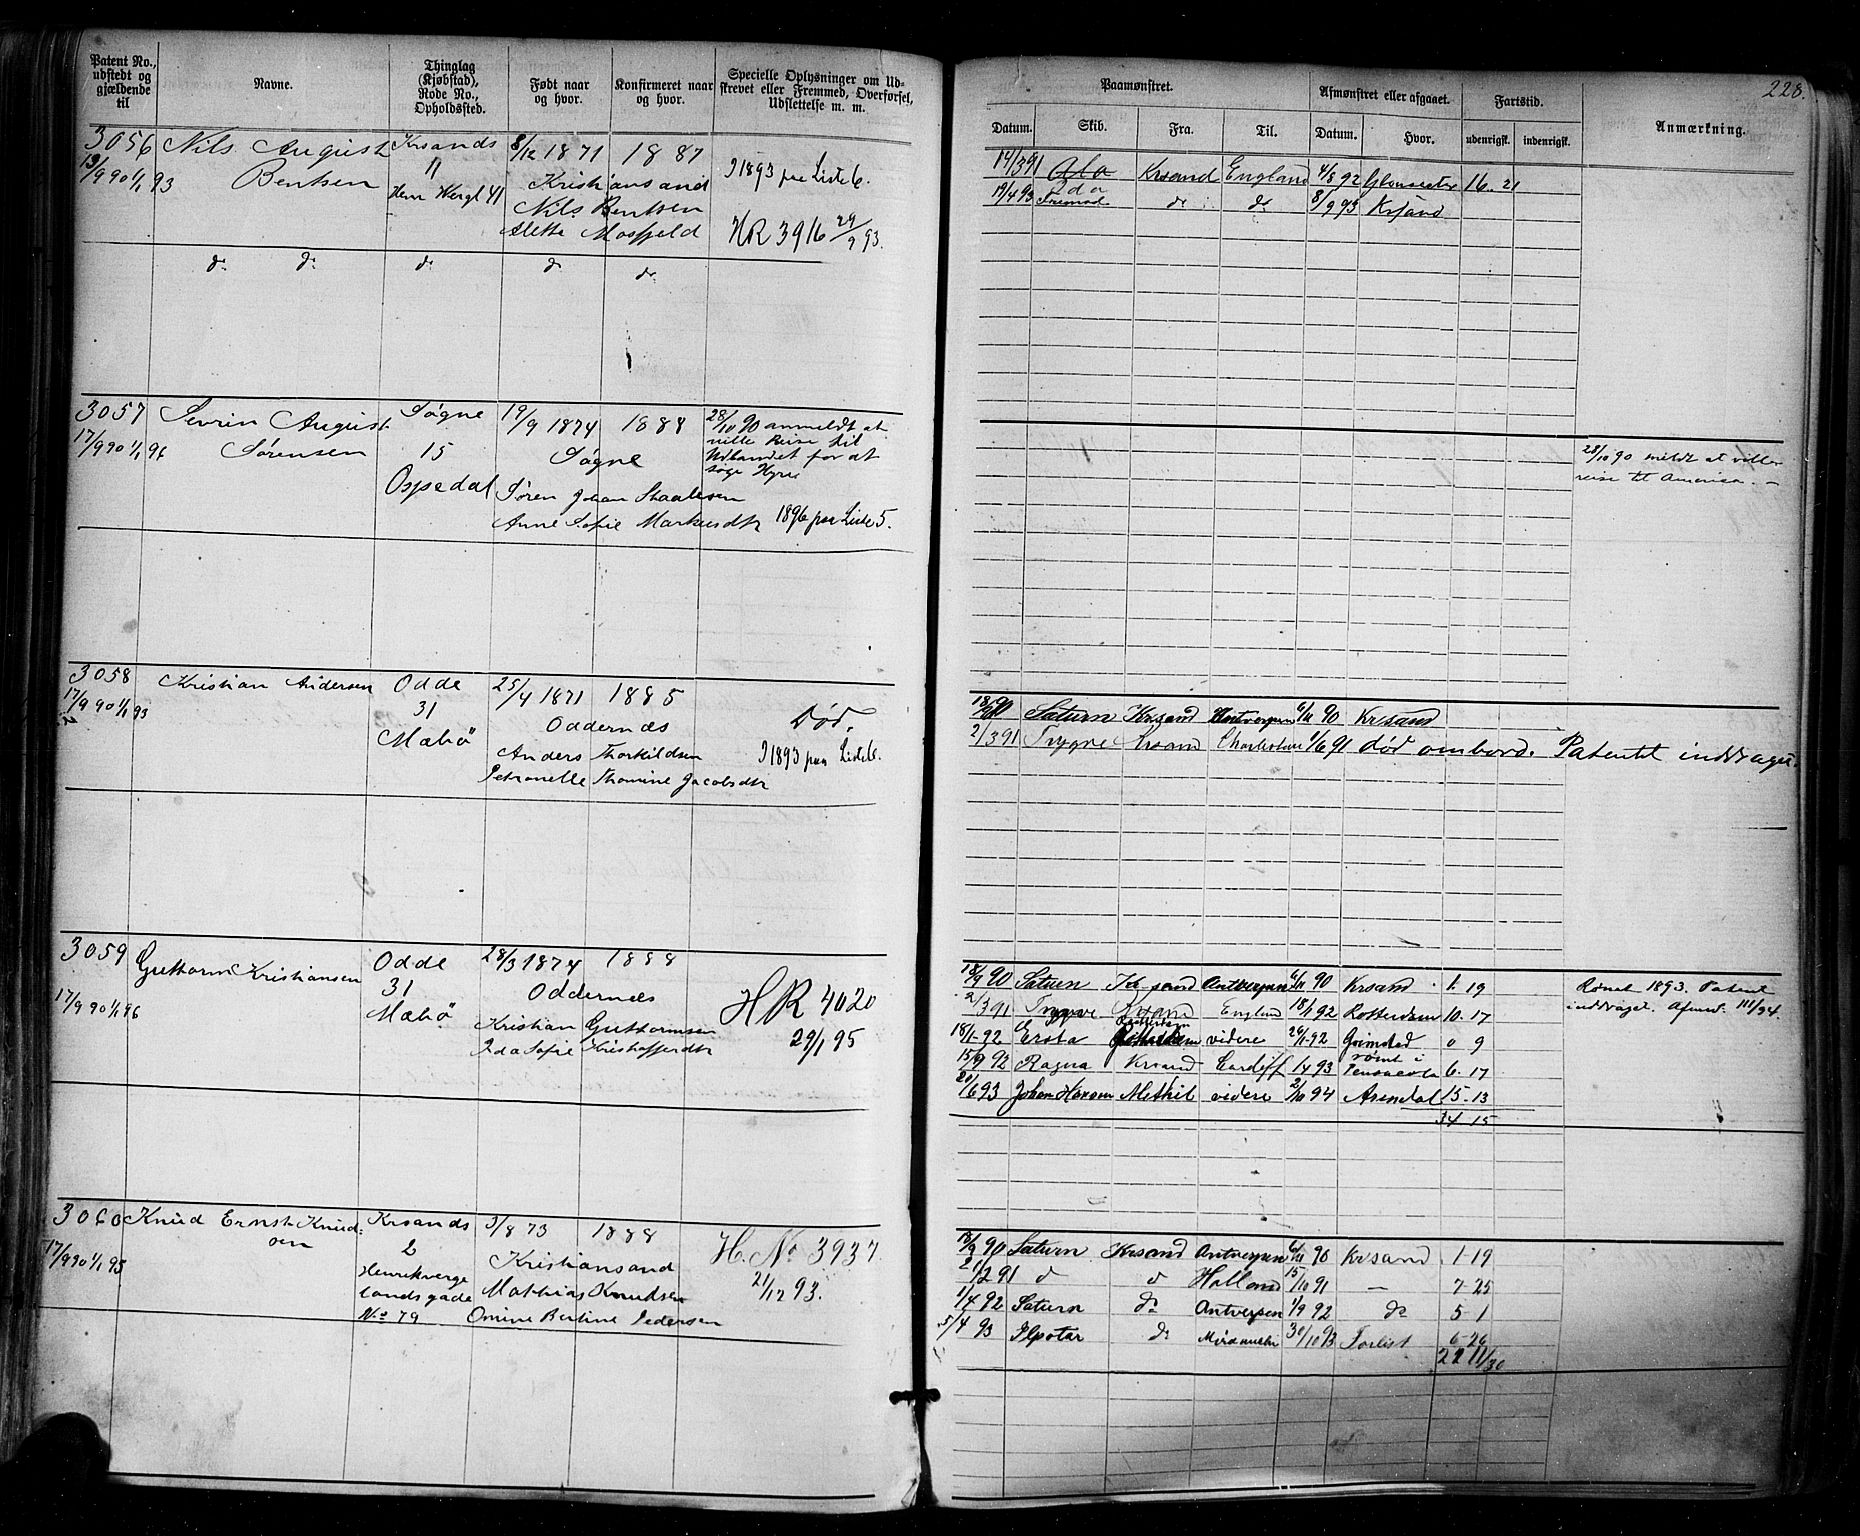 Patent No., udstedt og gjældende til
Navne.
Thinglag (Kjøbstad), Rode No., Opholdssted.
Født naar og hvor.
Konfirmeret naar og hvor.
Specielle Oplysninger om Udskrevet eller Fremmed, Overførsel, Udslettelse m. m.
3056 Nils August Krsands 8/12 1871 1887
13/9 90 1/1 93 Bentsen 11 Kristiansand I 1893 paa Liste 6.
Henr Wergl 41 Nils Bentsen
Alette Mosfjeld HR 3916 29/9 93.
do do do do do
3057 Sevrin August Søgne 19/9 1874 1888 28/10 90 anmeldt at
17/9 90 1/1 96 Sørensen 15 Søgne ville Reise til
Udlandet for at
søge Hyre
Ospedal Søren Johan Staalesen
Anne Sofie Markusdtr 1896 paa Liste 5.
3058 Kristian Andersen Odde 25/4 1871 1885
17/9 90 1/1 93 31 Oddernæs Død.
Mæbø Anders Thorkildsen I 1893 paa Liste 6.
Petronelle Thomine Jacobsdtr
3059 Guttorm Kristiansen Odde 28/3 1874 1888
17/9 90 1/1 96 31 Oddernæs HR 4020
Mæbø Kristian Guttormsen 29/1 95
Ida Sofie Kristoffersdtr
3060 Knud Ernst Knud- Krsands 3/8 73 1888
17/9 90 1/1 95 sen 2 Kristiansand H. No 3937.
Henrikverge Mathias Knudsen 21/12 93.
landsgade
No 79 Omine Bertine Pedersen
228.
Paamønstret.
Afmønstret eller afgaaet.
Fartstid.
Anmærkning.
Datum. Skib. Fra. Til. Datum. Hvor. udenrigsk. indenrigsk.
14/3 91 Krsand England 4/8 92 16. 21
19/4 93 do do 8/9 93 Krsand
28/10 90 meldt at ville
reise til America. -
18/9 90 Saturn Krsand Antverpen 6/11 90 Krsand
2/3 91 Trygve Krsand 1/6 91 død ombord. Patentet inddraget.
18/9 90 Saturn Krsand Antverpen 6/11 90 Krsand 1. 19 Rømt 1893. Patent
2/3 91 Trygve Krsand England 18/1 92 Rotterdam 10. 17 inddraget.
18/1- 92 Ersta Rotterdam videre 26/1-92 Grimstad 0 9
15/9 92 Ragna Krsand Cardiff 1/4 93 rømt i Pensacola 6. 17
20/6 93 Johan Hansen Methil videre 2/10 94 Arendal 15. 13
34 15
18/9 90 Saturn Krsand Antverpen 6/11 90 Krsand 1-19
21/2 91 d d Holland 15/10 91 - 7-25
1/4 92 Saturn do Antverpen 1/9 92 do 5 1
5/4 93 do 30/10 93 Forlist 6-26
21 11/30